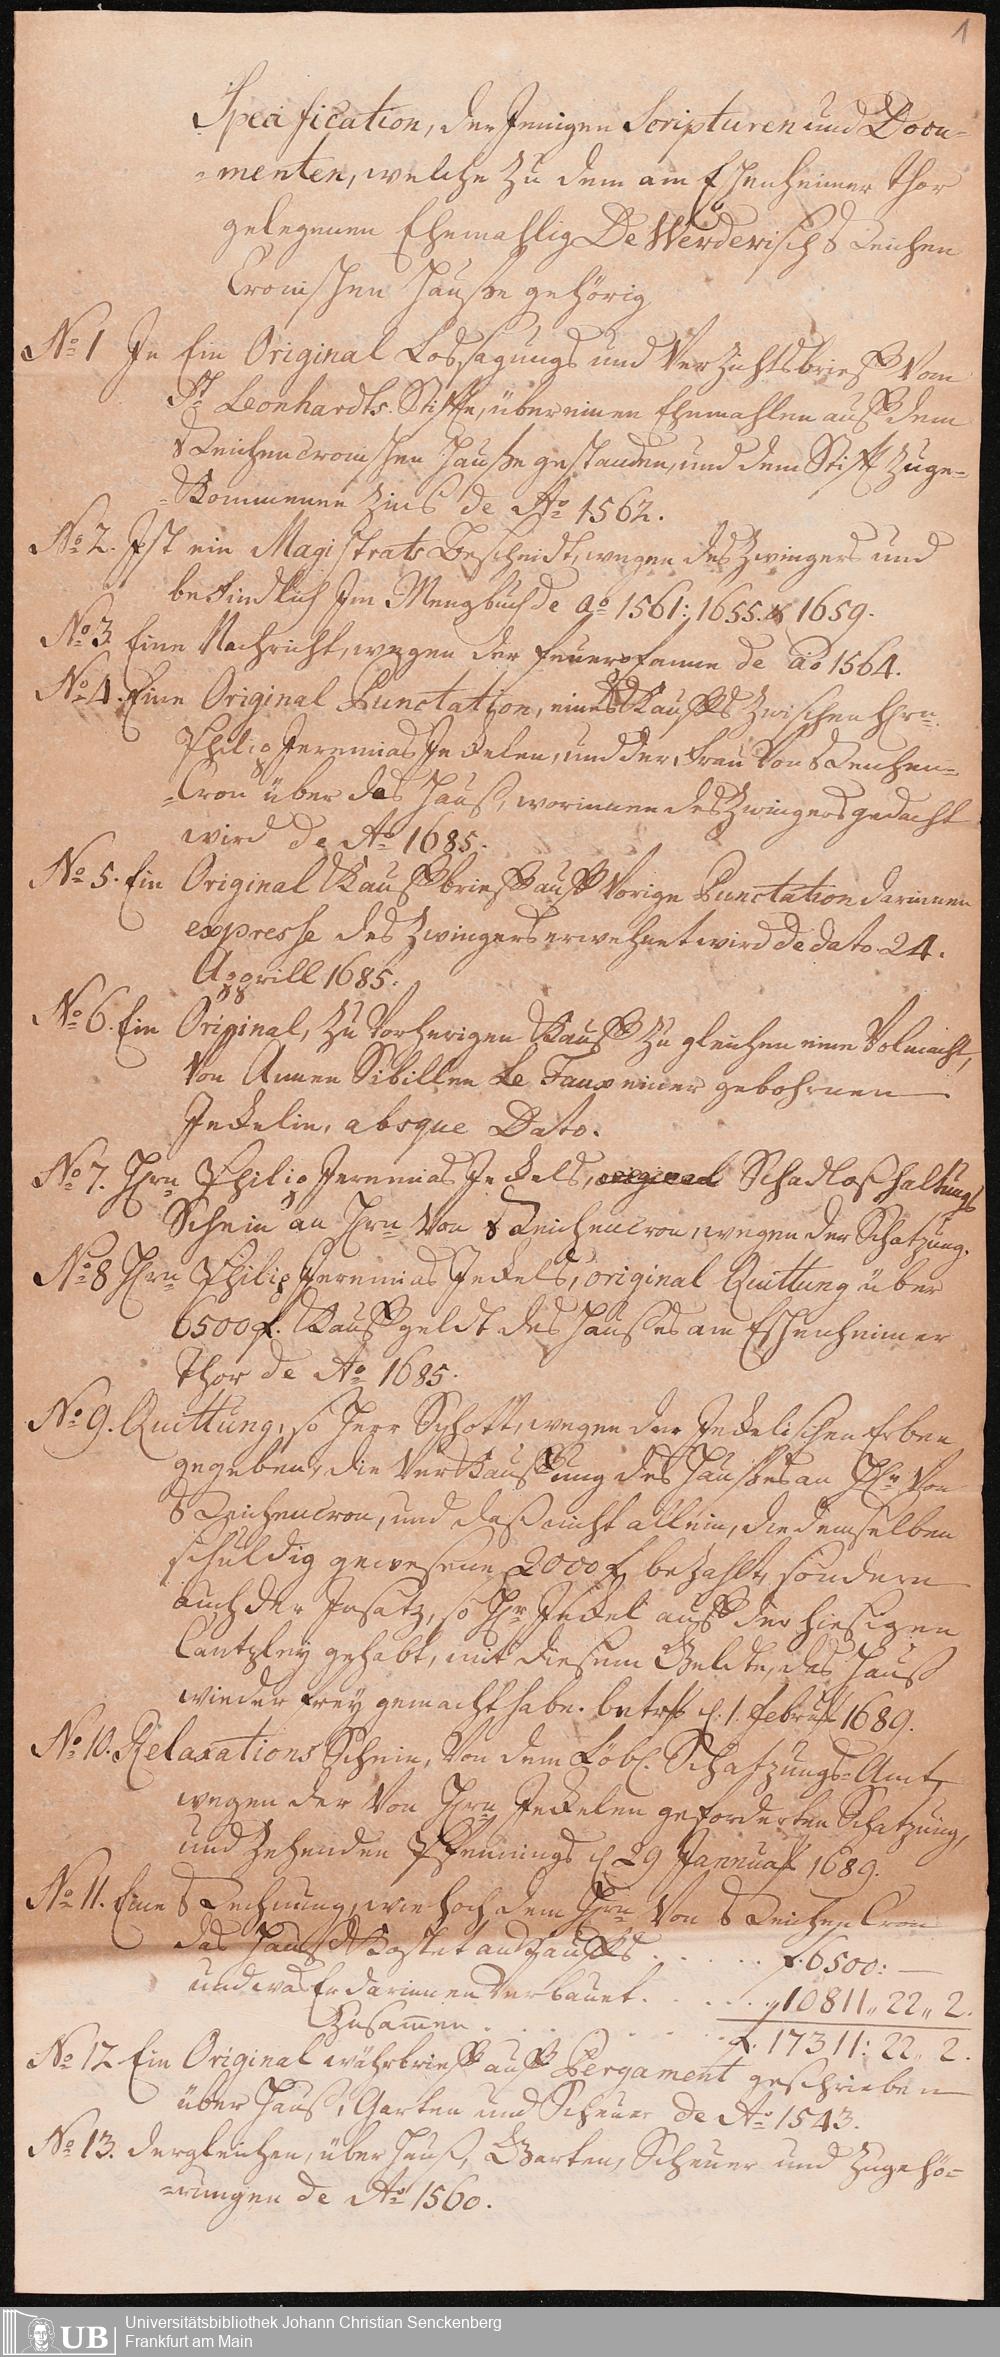 1
Specification, der Jenigen Scripturen und Docu-
-menten, welche zu dem am Eschenheimer Thor
gelegenen Ehemahlig De Werderisch Reichen
Cronischen Hauße gehörig
No. 1 Je Ein Original Lossagungs und Verzichtsbrieff vom
St. Leonhardts Stifft, über einen Ehemahlen auff dem
Reichencronischen Hauße gestanden, und dem Stifft zuge-
-kommenen Zins de Ao. 1562.
No. 2. Ist ein Magistrats Bescheidt, wegen des Zwingers und
befindlich Im Mengbuch de ao. 1561: 1655. & 1659.
No. 3. Eine Nachricht, wegen der feuerpfanne de ao 1564.
No. 4. Eine Original Punctation, eines Kauffs zwischen Hrn.
Philip Jeremias Jeckelen, und der Frau von Reichen-
-Cron über das Hauß, worinnen des Zwingers gedacht
wird de Ao. 1685.
No. 5. Ein Original Kauffbrieff auff Vorige Punctation darinnen
expresse des Zwingers erwehnet wird de dato 24.
Apprill 1685.
No. 6. Ein Original, zu Vorherigen Kauff zu gleichen eine Volmacht,
Von Annen Sibillen Le Faux einer gebohrnen
Jeckelin, absque Dato.
No. 7. Hrn Philip Jeremias Jeckels, original Schadloßhaltungs
Schein an Hrn Von Reichencron, wegen der Schatzung.
No. 8 Hrn Philip Jeremias Jeckels, original Quittung über
6500 f. Kauffgeldt des Haußes am Eschenheimer
Thor de Ao. 1685.
No. 9. Quittung, so Herr Schott, wegen der Jeckelischen Erben
gegeben, die Verkauffung des Haußes an Hr. Von
Reichencron, und daß nicht allein, die demselben
schuldig gewesene 2000 f. bezahlt, sondern
auch der Insatz, so Hr. Jeckel auff der hiesigen
Cantzley gehabt, mit diesem Gelde, das Hauß
wieder frey gemacht habe. d. 1. Februar 1689.
No. 10. Relaxations Schein, Von dem Löbl. Schatzungs-Amt,
wegen der Von Hrn Jeckelen geforderten Schatzung,
und Zehenden Pfennings d 29 Jannuar 1689.
No. 11. Eine Rechnung, wie hoch dem Hrn Von Reichen Cron
das Hauß Kostet an Kauff . . . . . f. 6500: —
und was Er darinnen verbauet. . . . . . „ 10811„ 22„ 2.
Zusamen . . . . . . f. 17311: 22„ 2.
No. 12 Ein Original währbrieff auff Pergament geschrieben
über Hauß, Garten und Scheuer de Ao. 1543.
No. 13. dergleichen, über Hauß, Garten, Scheuer und Zugehö-
-rungen de Ao. 1560.
UB Universitätsbibliothek Johann Christian Senckenberg
Frankfurt am Main